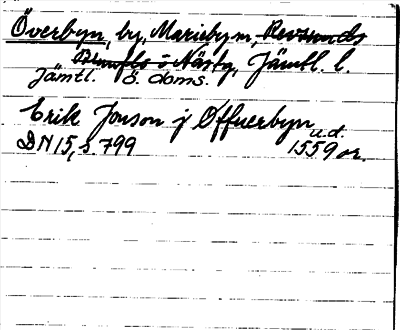 Överbyn, by, Marieby sn, Revsunds
Brunflo o Näsby, Jämtl. l.
Jämtl. ö. doms.
Erik Jonson j Offuerbyn
u.d.
DN 15, s. 799 1559 or.